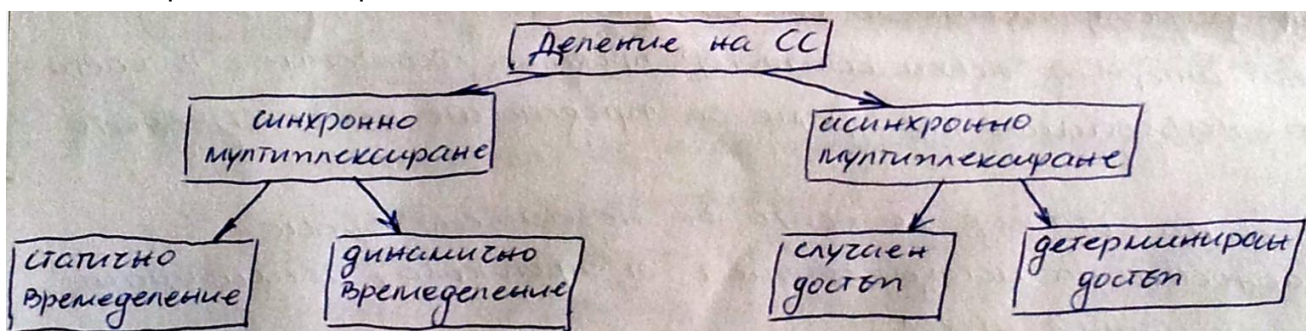 Деление на СС
синхронно
мултиплексиране
асинхронно
мултиплексиране
статично
времеделение
динамично
времеделение
случаен
достъп
детерминиран
достъп